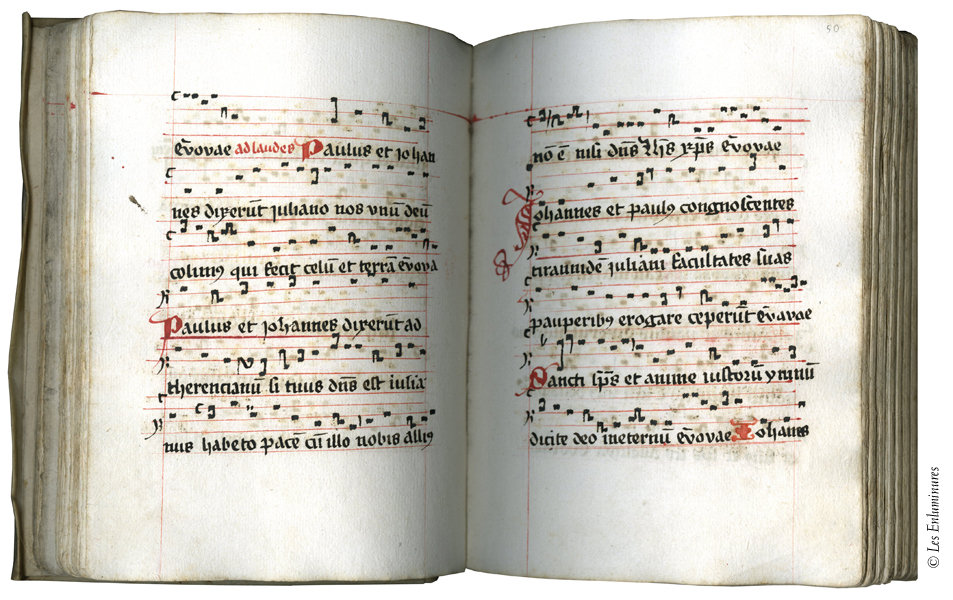 Evovae ad laudes Paulus et iohan
nes dixerūt iuliano nos vnū deū
colimꝰ qui fecit celū et terrā evova
Paulus et iohannes dixerūt ad
therencianū si tuus dn̄s est iulia
nus habeto pacē cū illo nobis alliꝰ
50
nō ē nisi dn̄s ih̄s xp̄s evovae
Iohannes et paulꝰ congnoscentes
tirannidē iuliani facultates suas
pauperibꝰ erogare ceperūt evavae
Sancti sp̄s et anime iustorū ymnū
dicite deo ineternū evovae Iohanes
© Les Enluminures